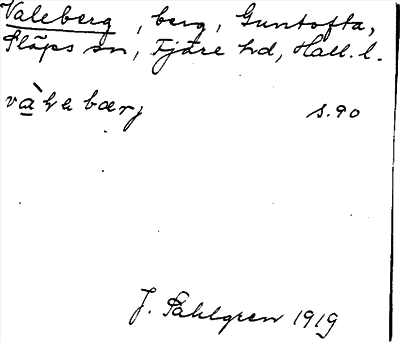 Valeberg, berg, Guntofta,
Släps sn, Fjäre hd, Hall. l.
và le bærj s. 90
J. Sahlgren 1919